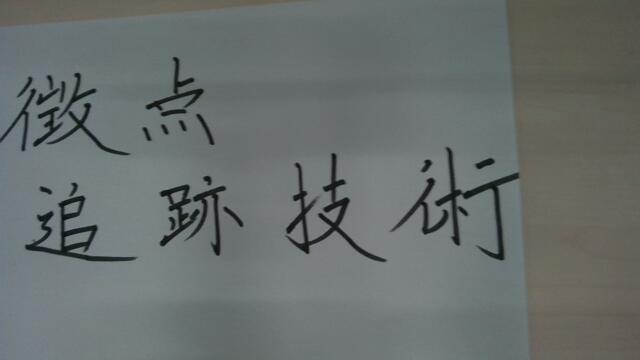 徴点
追跡技術